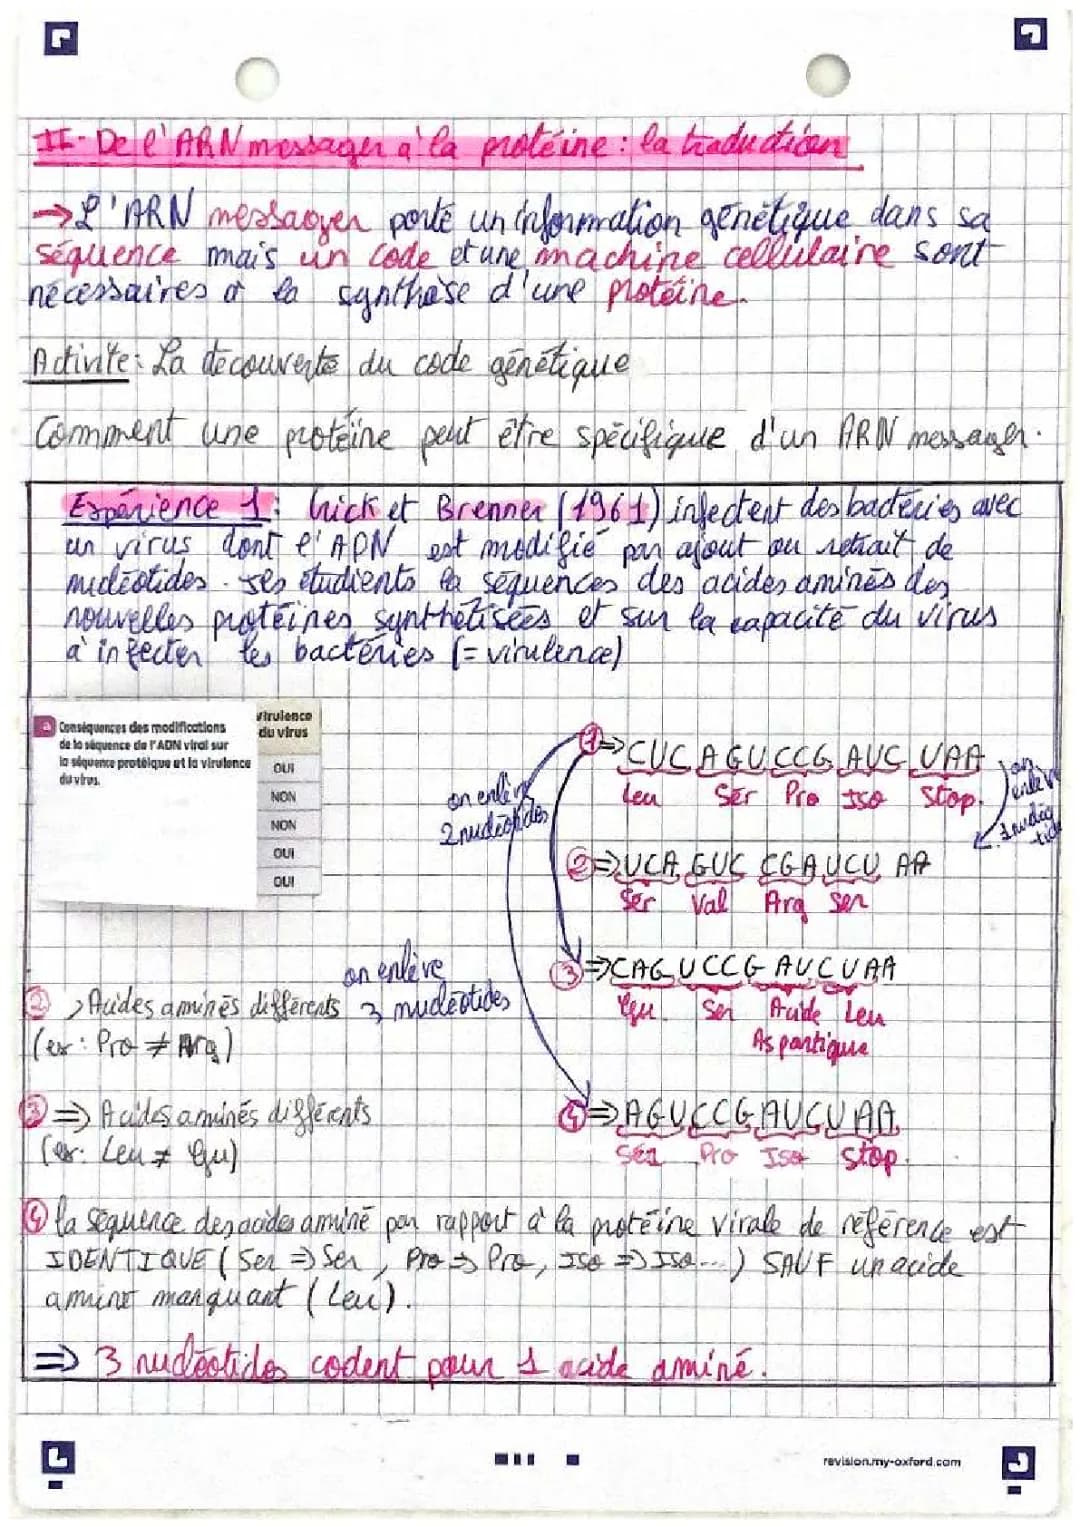 II- De l'ARN messager à la protéine : la traduction
→ L'ARN messager porte un information génétique dans sa
séquence mais un code et une machine cellulaire sont
nécessaires à la synthèse d'une protéine.
Activité: La découverte du code génétique
Comment une protéine peut être spécifique d'un ARN messager.
Expérience 1: Crick et Brenner (1961) infectent des bactéries avec
un virus dont l'ADN est modifié par ajout ou retrait de
nucléotides. Ils étudients la séquences des acides aminés des
nouvelles protéines synthétisées et sur la capacité du virus
à infecter les bactéries (= virulence)
a Conséquences des modifications
de la séquence de l'ADN viral sur
la séquence protéique et la virulence
du virus.
Virulence
du virus
OUI
NON
NON
OUI
OUI
① ⇒ CUC AGU CCG AUC UAA
Leu Ser Pro Iso Stop.
on enlève
2 nucléotides
on
enlève
1 nucléo
tide
② ⇒ UCA GUC CGA UCU AA
Ser Val Arg Ser
③ ⇒ CAG UCC G AUC UAA
Ser Acide Leu
Aspartique
on enlève
3 nucléotides
② > Acides aminés différents
(ex: Pro ≠ Arg)
③ ⇒ Acides aminés différents
(ex: Leu ≠ Glu)
④ ⇒ AGU CCG AUC UAA
Ser Pro Iso Stop.
④ la séquence des acides aminé par rapport à la protéine virale de référence est
IDENTIQUE (Ser ⇒ Ser, Pro ⇒ Pro, Iso ⇒ Iso...) SAUF un acide
aminé manquant (Leu).
⇒ 3 nucléotides codent pour 1 acide aminé.
revision.my-oxford.com